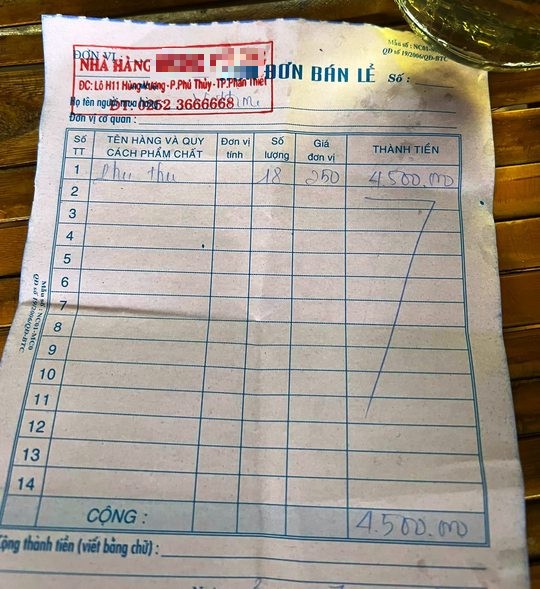 ĐƠN VỊ :
Mẫu số : NC01-
QĐ số 19/2006/QĐ-BTC
NHÀ HÀNG
ĐC: Lô H11 Hùng Vương - P.Phú Thủy - TP.Phan Thiết
ĐT: 0252 3666668
ĐƠN BÁN LẺ Số :
Họ tên người mua
Đơn vị cơ quan :
Số TT TÊN HÀNG VÀ QUY CÁCH PHẨM CHẤT Đơn vị tính Số lượng Giá đơn vị THÀNH TIỀN
1 phụ thu 18 250 4.500.000
2
3
4
5
6
7
8
9
10
11
12
13
14
CỘNG : 4.500.000
Cộng thành tiền (viết bằng chữ) :
Mẫu số : NC01-MC0
QĐ số 19/2006/QĐ-BTC